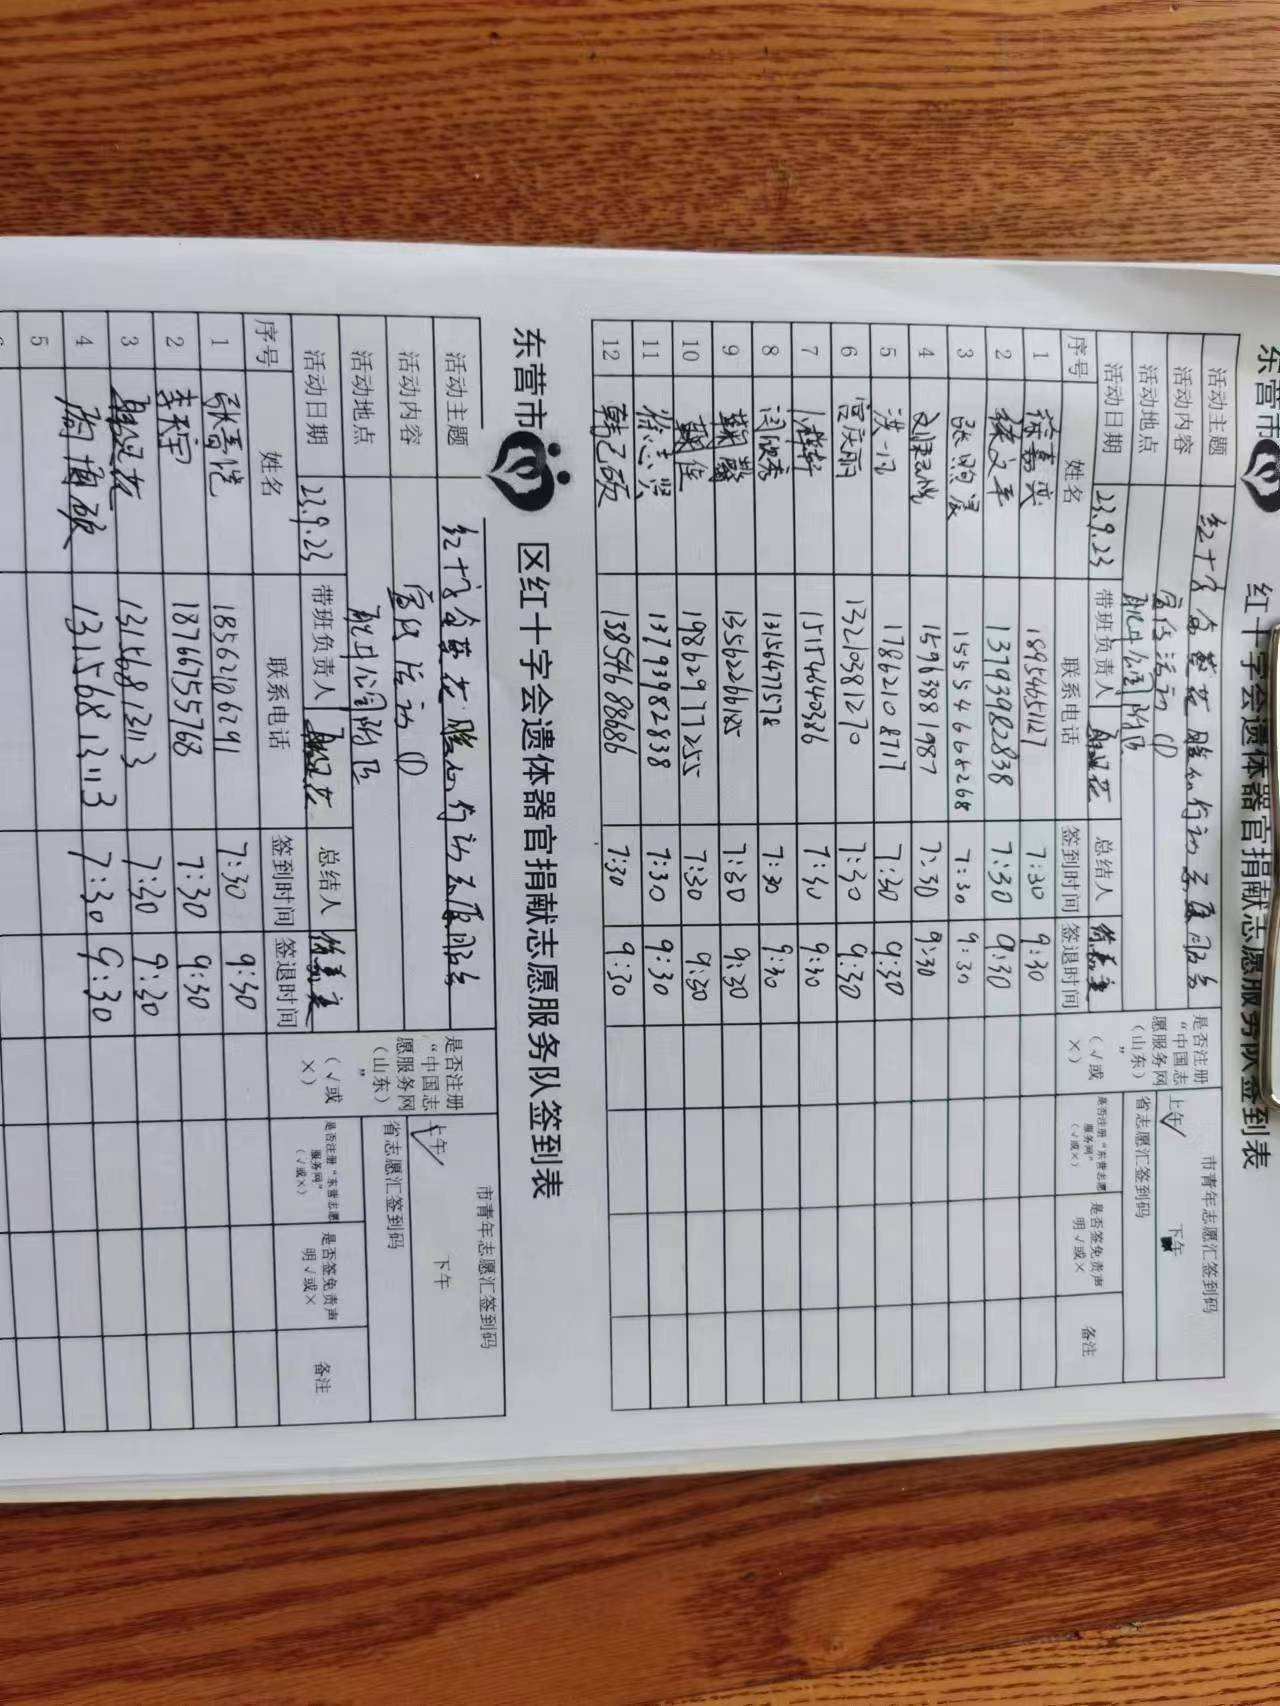 东营市 红十字会遗体器官捐献志愿服务队签到表
活动主题 红十字会 行动志愿服务 市青年志愿汇签到码
活动内容 宣传活动 (1) 上午√ 下午
活动地点 附近 省志愿汇签到码
活动日期 23.9.23 带班负责人 总结人 是否注册“中国志愿服务网”(山东)
序号 姓名 联系电话 签到时间 签退时间 (√或×) 是否注册“东营志愿服务网”(√或×) 是否签免责声明√或× 备注
1 徐嘉奕 18954651127 7:30 9:30
2 徐文军 13793982838 7:30 9:30
3 张煦宸 15554668268 7:30 9:30
4 15963881987 7:30 9:30
5 洪一凡 17862108717 7:30 9:30
6 宫庆丽 13210381270 7:30 9:30
7 15154640386 7:30 9:30
8 闫欣秀 13156477578 7:30 9:30
9 13562266185 7:30 9:30
10 19862977255 7:30 9:30
11 徐志兴 13793982838 7:30 9:30
12 韩乙硕 13854688686 7:30 9:30
东营市 区红十字会遗体器官捐献志愿服务队签到表
活动主题 红十字会 行动志愿服务 市青年志愿汇签到码
活动内容 宣传活动 (1) 上午√ 下午
活动地点 附近 省志愿汇签到码
活动日期 23.9.23 带班负责人 总结人 是否注册“中国志愿服务网”(山东)
序号 姓名 联系电话 签到时间 签退时间 (√或×) 是否注册“东营志愿服务网”(√或×) 是否签免责声明√或× 备注
1 张嘉恺 18562106291 7:30 9:30
2 李秉宇 18766755768 7:30 9:30
3 13156813113 7:30 9:30
4 13156813113 7:30 9:30
5